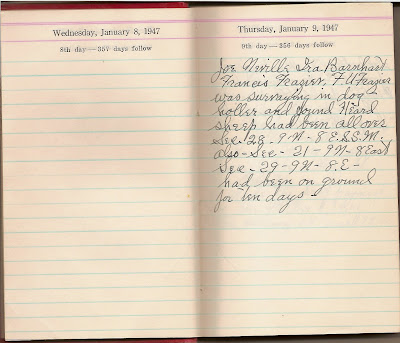 Wednesday, January 8, 1947
8th day—357 days follow
Thursday, January 9, 1947
9th day—356 days follow
Joe Neville Ira Barnhart
Francis Frazier, F. U Frazier
was surveying in dog
holler and found Heard
sheep had been all over
Sec-28-9N-8E.S.C.M.
also-Sec-21-9N-8East
Sec-29-9N-8.E-
had been on ground
for ten days-